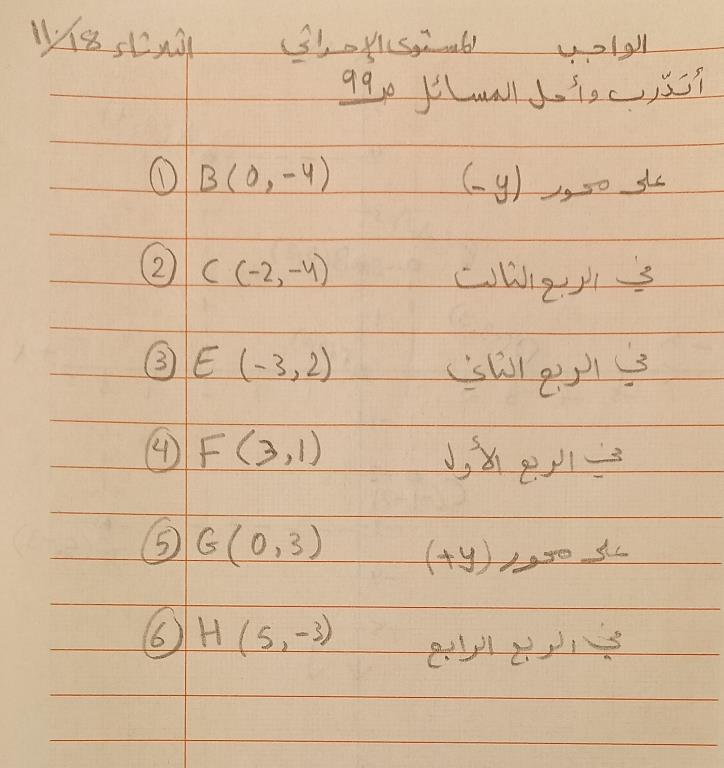 الواجب المستوى الإحداثي الثلاثاء 11/18
أتدّرب وأحل المسائل ص99
① B(0,-4) على محور (-y)
② C (-2,-4) في الربع الثالث
③ E (-3,2) في الربع الثاني
④ F (3,1) في الربع الأول
⑤ G(0,3) على محور (+y)
⑥ H (5,-3) في الربع الرابع